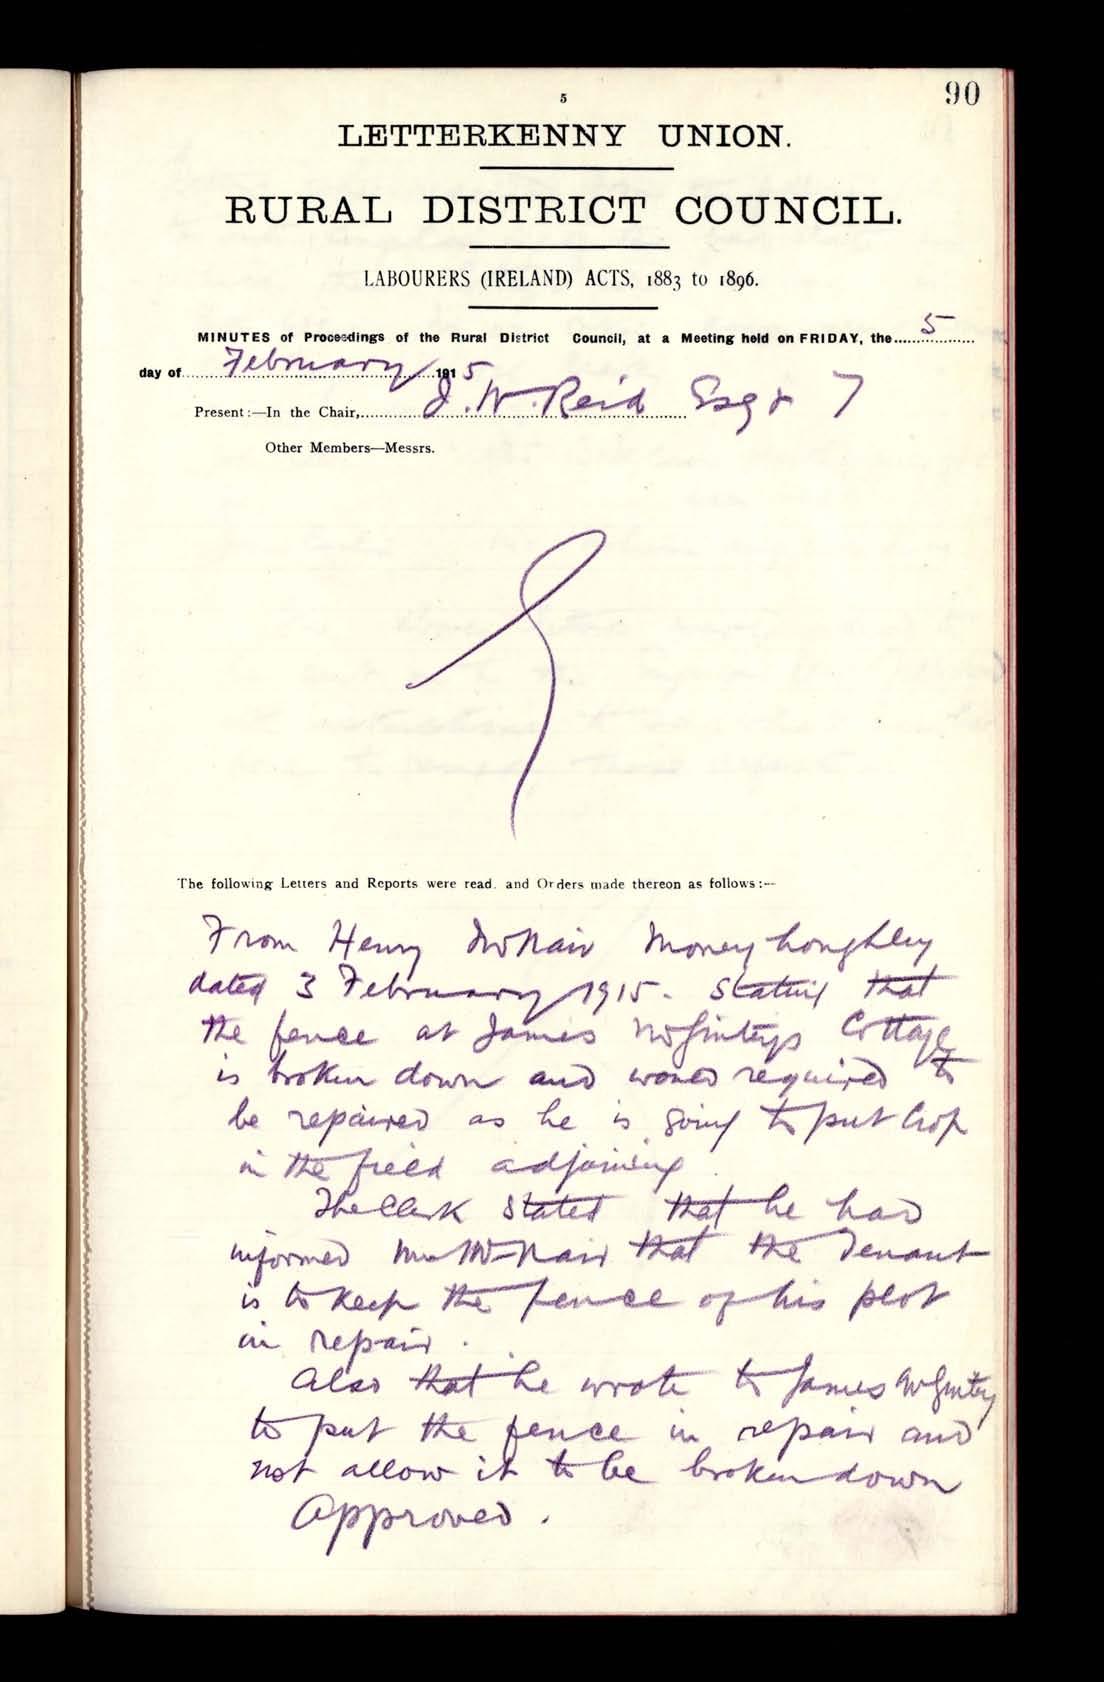 90
5
LETTERKENNY UNION.
RURAL DISTRICT COUNCIL.
LABOURERS (IRELAND) ACTS, 1883 to 1896.
MINUTES of Proceedings of the Rural District Council, at a Meeting held on FRIDAY, the 5
day of February 1915
Present:—In the Chair, J. W. Reid Esq & 7
Other Members—Messrs.
The following Letters and Reports were read. and Orders made thereon as follows:—
From Henry McNair Moneyhoughley
dated 3 February 1915. Stating that
the fence at James McGintys Cottage
is broken down and would required to
be repaired as he is going to put Crop
in the field adjoining.
The Clerk stated that he had
informed Mr McNair that the Tenant
is to keep the fence of his plot
in repair.
Also that he wrote to James McGinty
to put the fence in repair and
not allow it to be broken down
Approved.